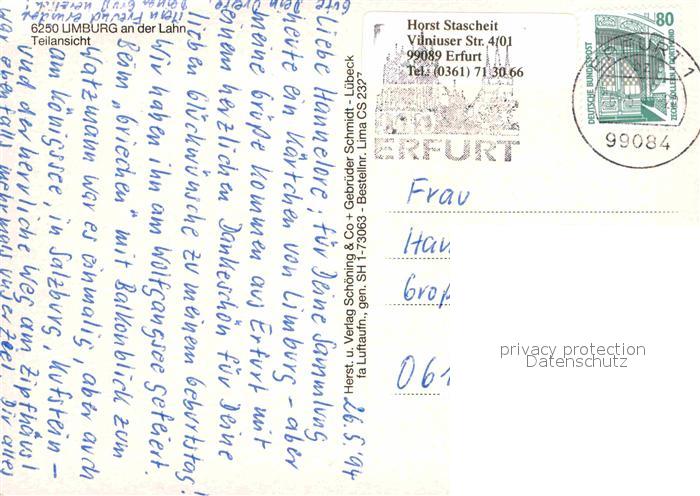 6250 LIMBURG an der Lahn
Teilansicht
Horst Stascheit
Vilniuser Str. 4/01
99089 Erfurt
Tel.: (0361) 71 30 66
ERFURT
DEUTSCHE BUNDESPOST
80
99084
26.5.'94
Liebe Hannelore, für Deine Sammlung
heute ein Kärtchen von Limburg - aber
meine Grüße kommen aus Erfurt mit
einem herzlichen Dankeschön für Deine
lieben Glückwünsche zu meinem Geburtstag!
Wir haben ihn am Wolfgangsee gefeiert.
Beim "Griechen" mit Balkonblick zum
Watzmann war es einmalig, aber auch
am Königssee, in Salzburg, Kufstein -
und der herrliche Weg am Zipfhäusl
war ebenfalls mehrmals unser Ziel. Dir alles
Gute Dein
Mein Freund
Herst. u. Verlag Schöning & Co + Gebrüder Schmidt - Lübeck
fa Luftaufn., gen. SH 1-73063 - Bestellnr. Lima CS 2327
Frau
Han
Groß
061
privacy protection
Datenschutz